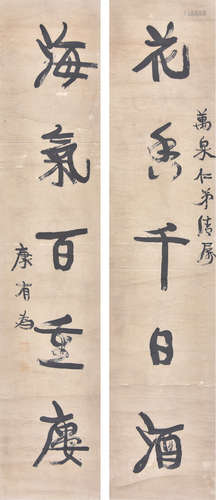 萬泉仁弟清屬
花香千日酒
海氣百重廔
康有為